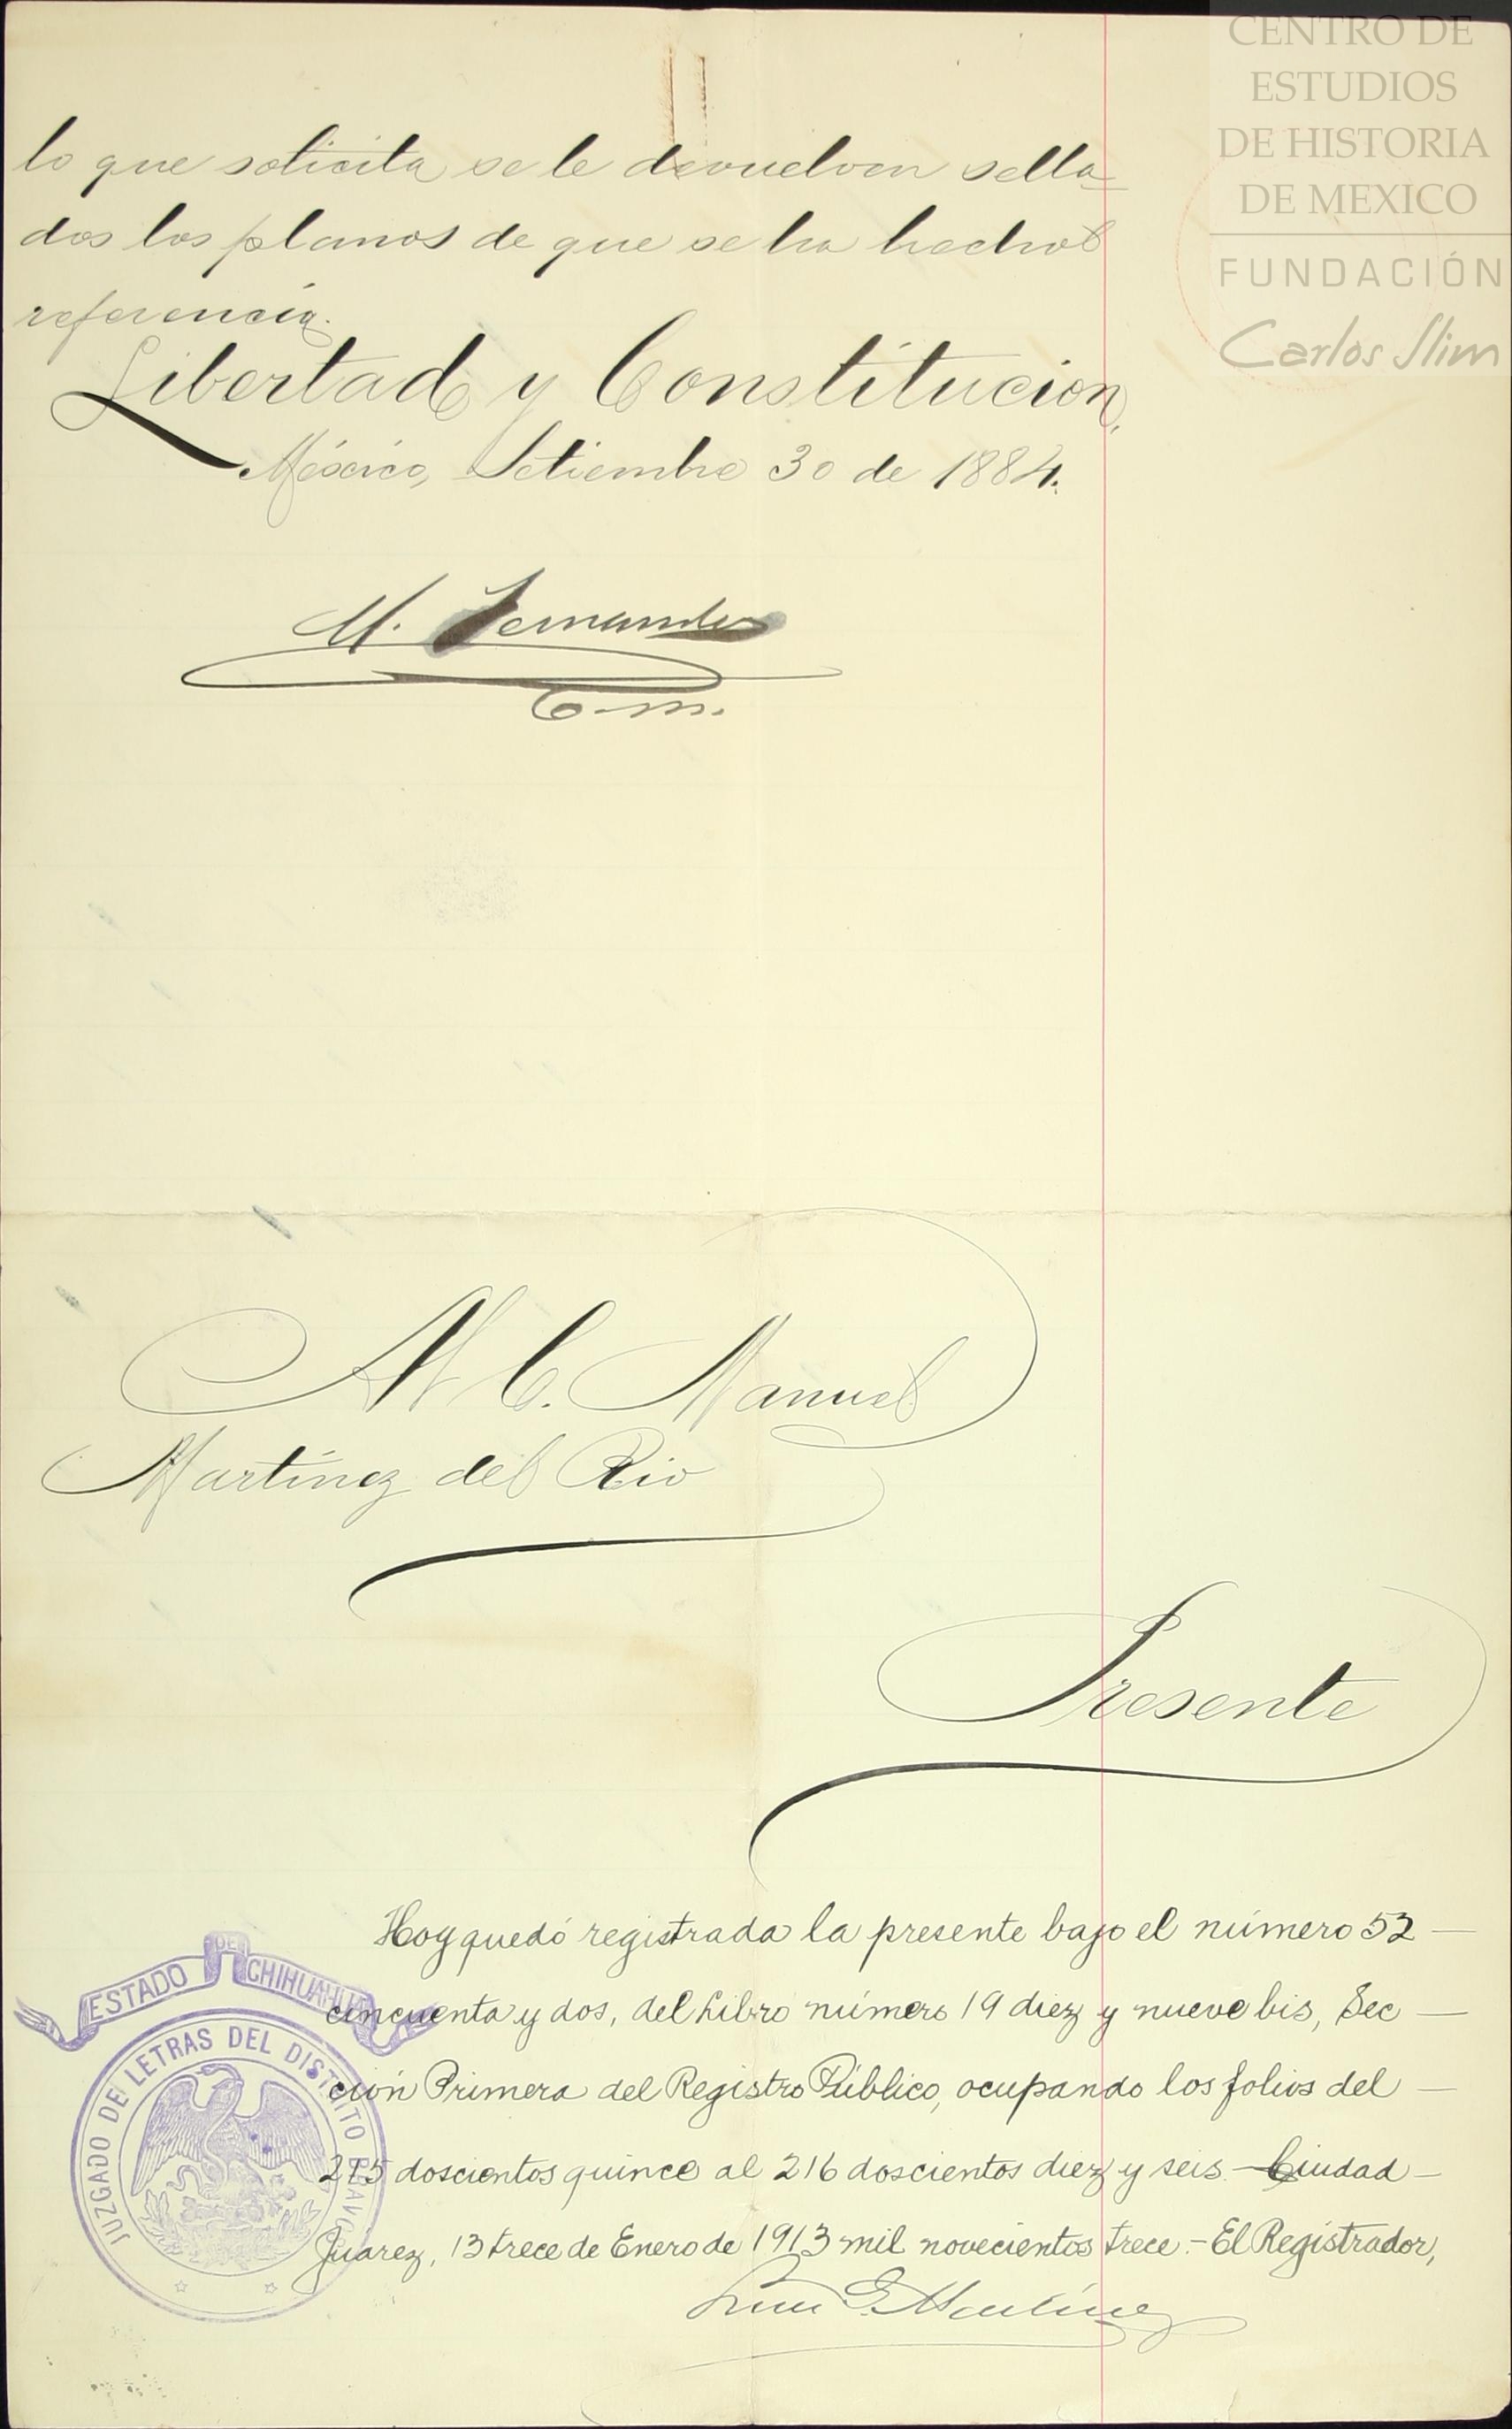 CENTRO DE
ESTUDIOS
DE HISTORIA
DE MEXICO
FUNDACIÓN
Carlos Slim
lo que solicita se le devuelven sella_
dos los planos de que se ha hecho
referencia.
Libertad y Constitucion,
México, Setiembre 30 de 1884.
M. Fernandez
O. m.
Al C. Manuel
Martínez del Rio
Presente
Hoy quedó registrada la presente bajo el número 52 —
cincuenta y dos, del Libro número 19 diez y nueve bis, Sec —
ción Primera del Registro Público, ocupando los folios del —
215 doscientos quince al 216 doscientos diez y seis. — Ciudad —
Juárez, 13 trece de Enero de 1913 mil novecientos trece. — El Registrador,
Martínez
ESTADO DE CHIHUAHUA
JUZGADO DE LETRAS DEL DISTRITO BRAVOS